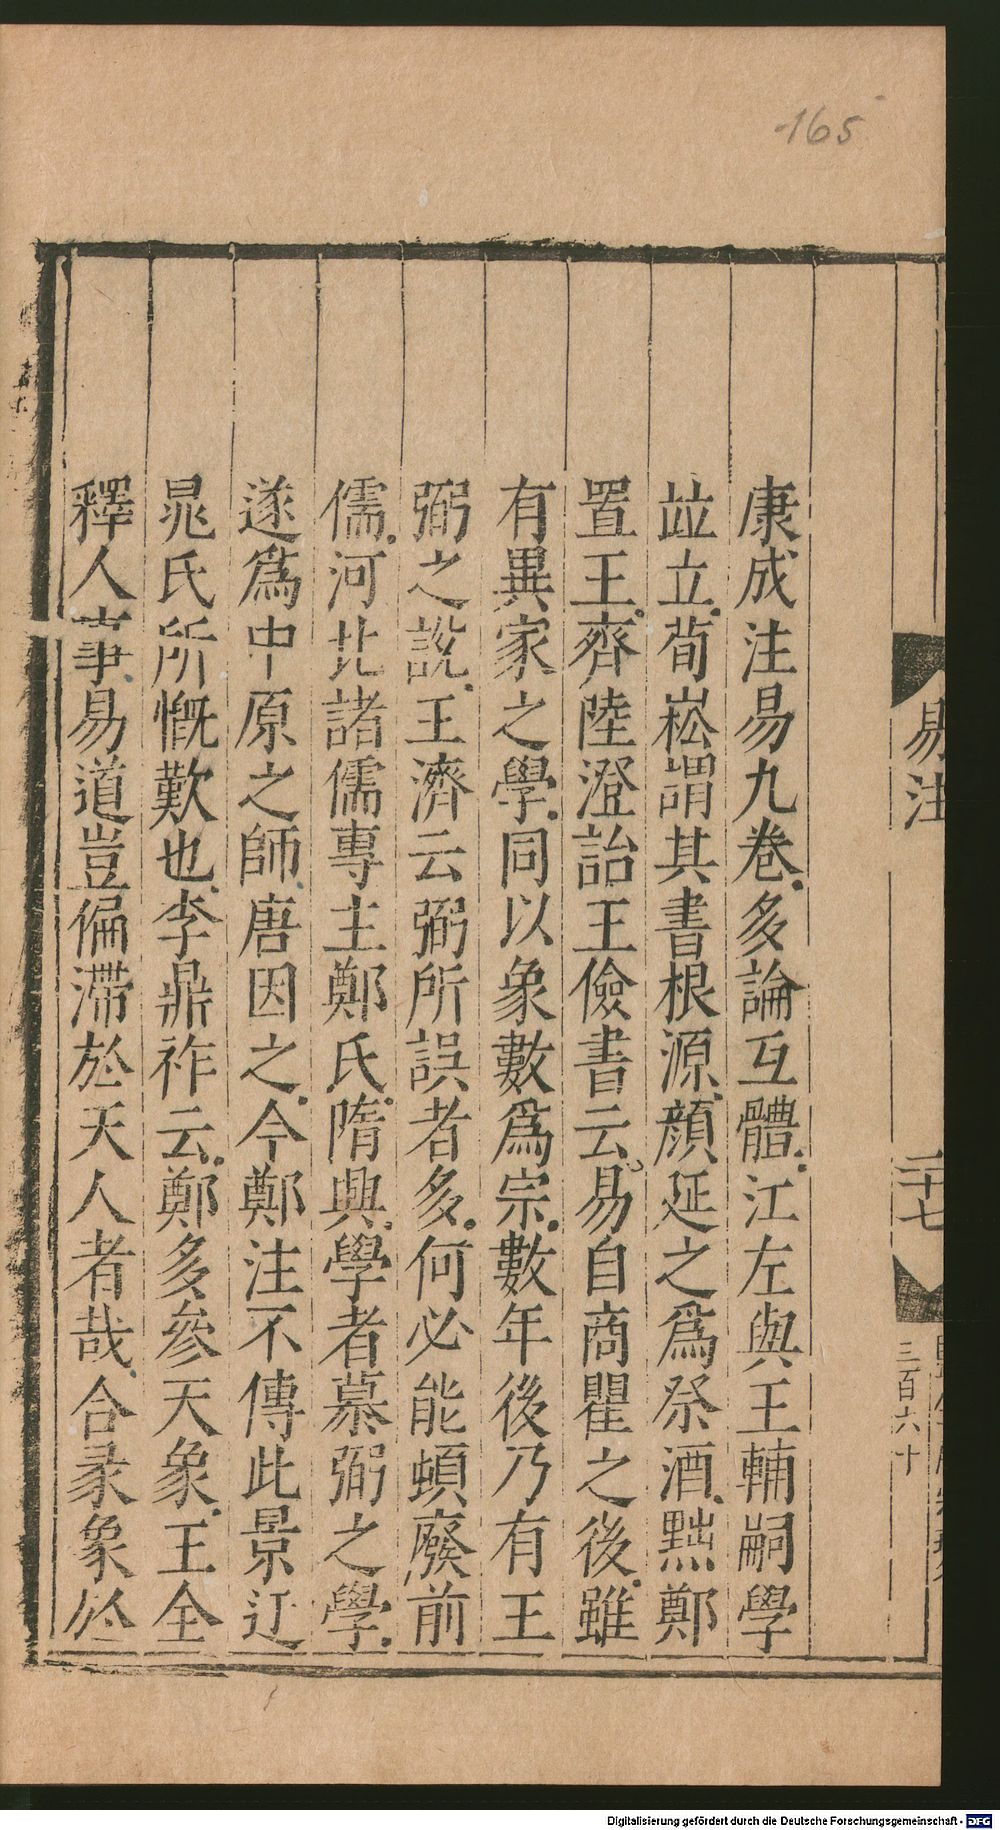 165
康成注易九卷。多論互體。江左與王輔嗣學
竝立。荀崧謂其書根源。顏延之為祭酒。黜鄭
置王。齊陸澄詒王儉書云。易自商瞿之後。雖
有異家之學。同以象數爲宗。數年後乃有王
弼之說。王濟云弼所誤者多。何必能頓廢前
儒。河北諸儒專主鄭氏。隋興。學者慕弼之學。
遂爲中原之師。唐因之。今鄭注不傳此景迂
晁氏所慨歎也。李鼎祚云。鄭多參天象。王全
釋人事。易道豈偏滯於天人者哉。合彖象於
易注
二十七
三百六十
Digitalisierung gefördert durch die Deutsche Forschungsgemeinschaft - DFG